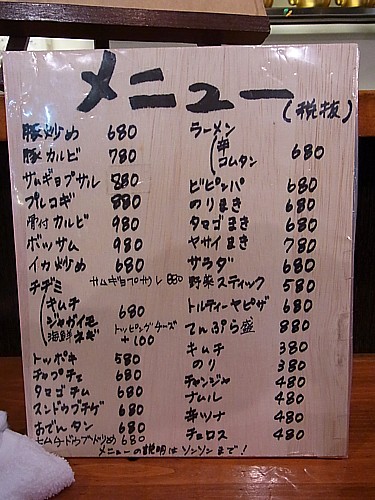 メニュー
(税抜)
豚炒め 680
豚カルビ 780
サムギョプサル 880
プルコギ 880
骨付カルビ 980
ボッサム 980
イカ炒め 680
サムギョプサル 880
チヂミ
キムチ
ジャガイモ 680
海鮮ネギ
トッピングチーズ
+100
トッポキ 580
チャプチェ 680
タマゴチム 680
スンドゥブチゲ 680
おでんタン 680
680
ラーメン
辛
コムタン 680
ビビンパ 680
のりまき 680
タマゴまき 680
ヤサイまき 780
サラダ 680
野菜スティック 580
トルティーヤピザ 680
てんぷら盛 880
キムチ 380
のり 380
チャンジャ 480
ナムル 480
辛ツナ 480
チェロス 480
メニューの説明はソンソンまで!